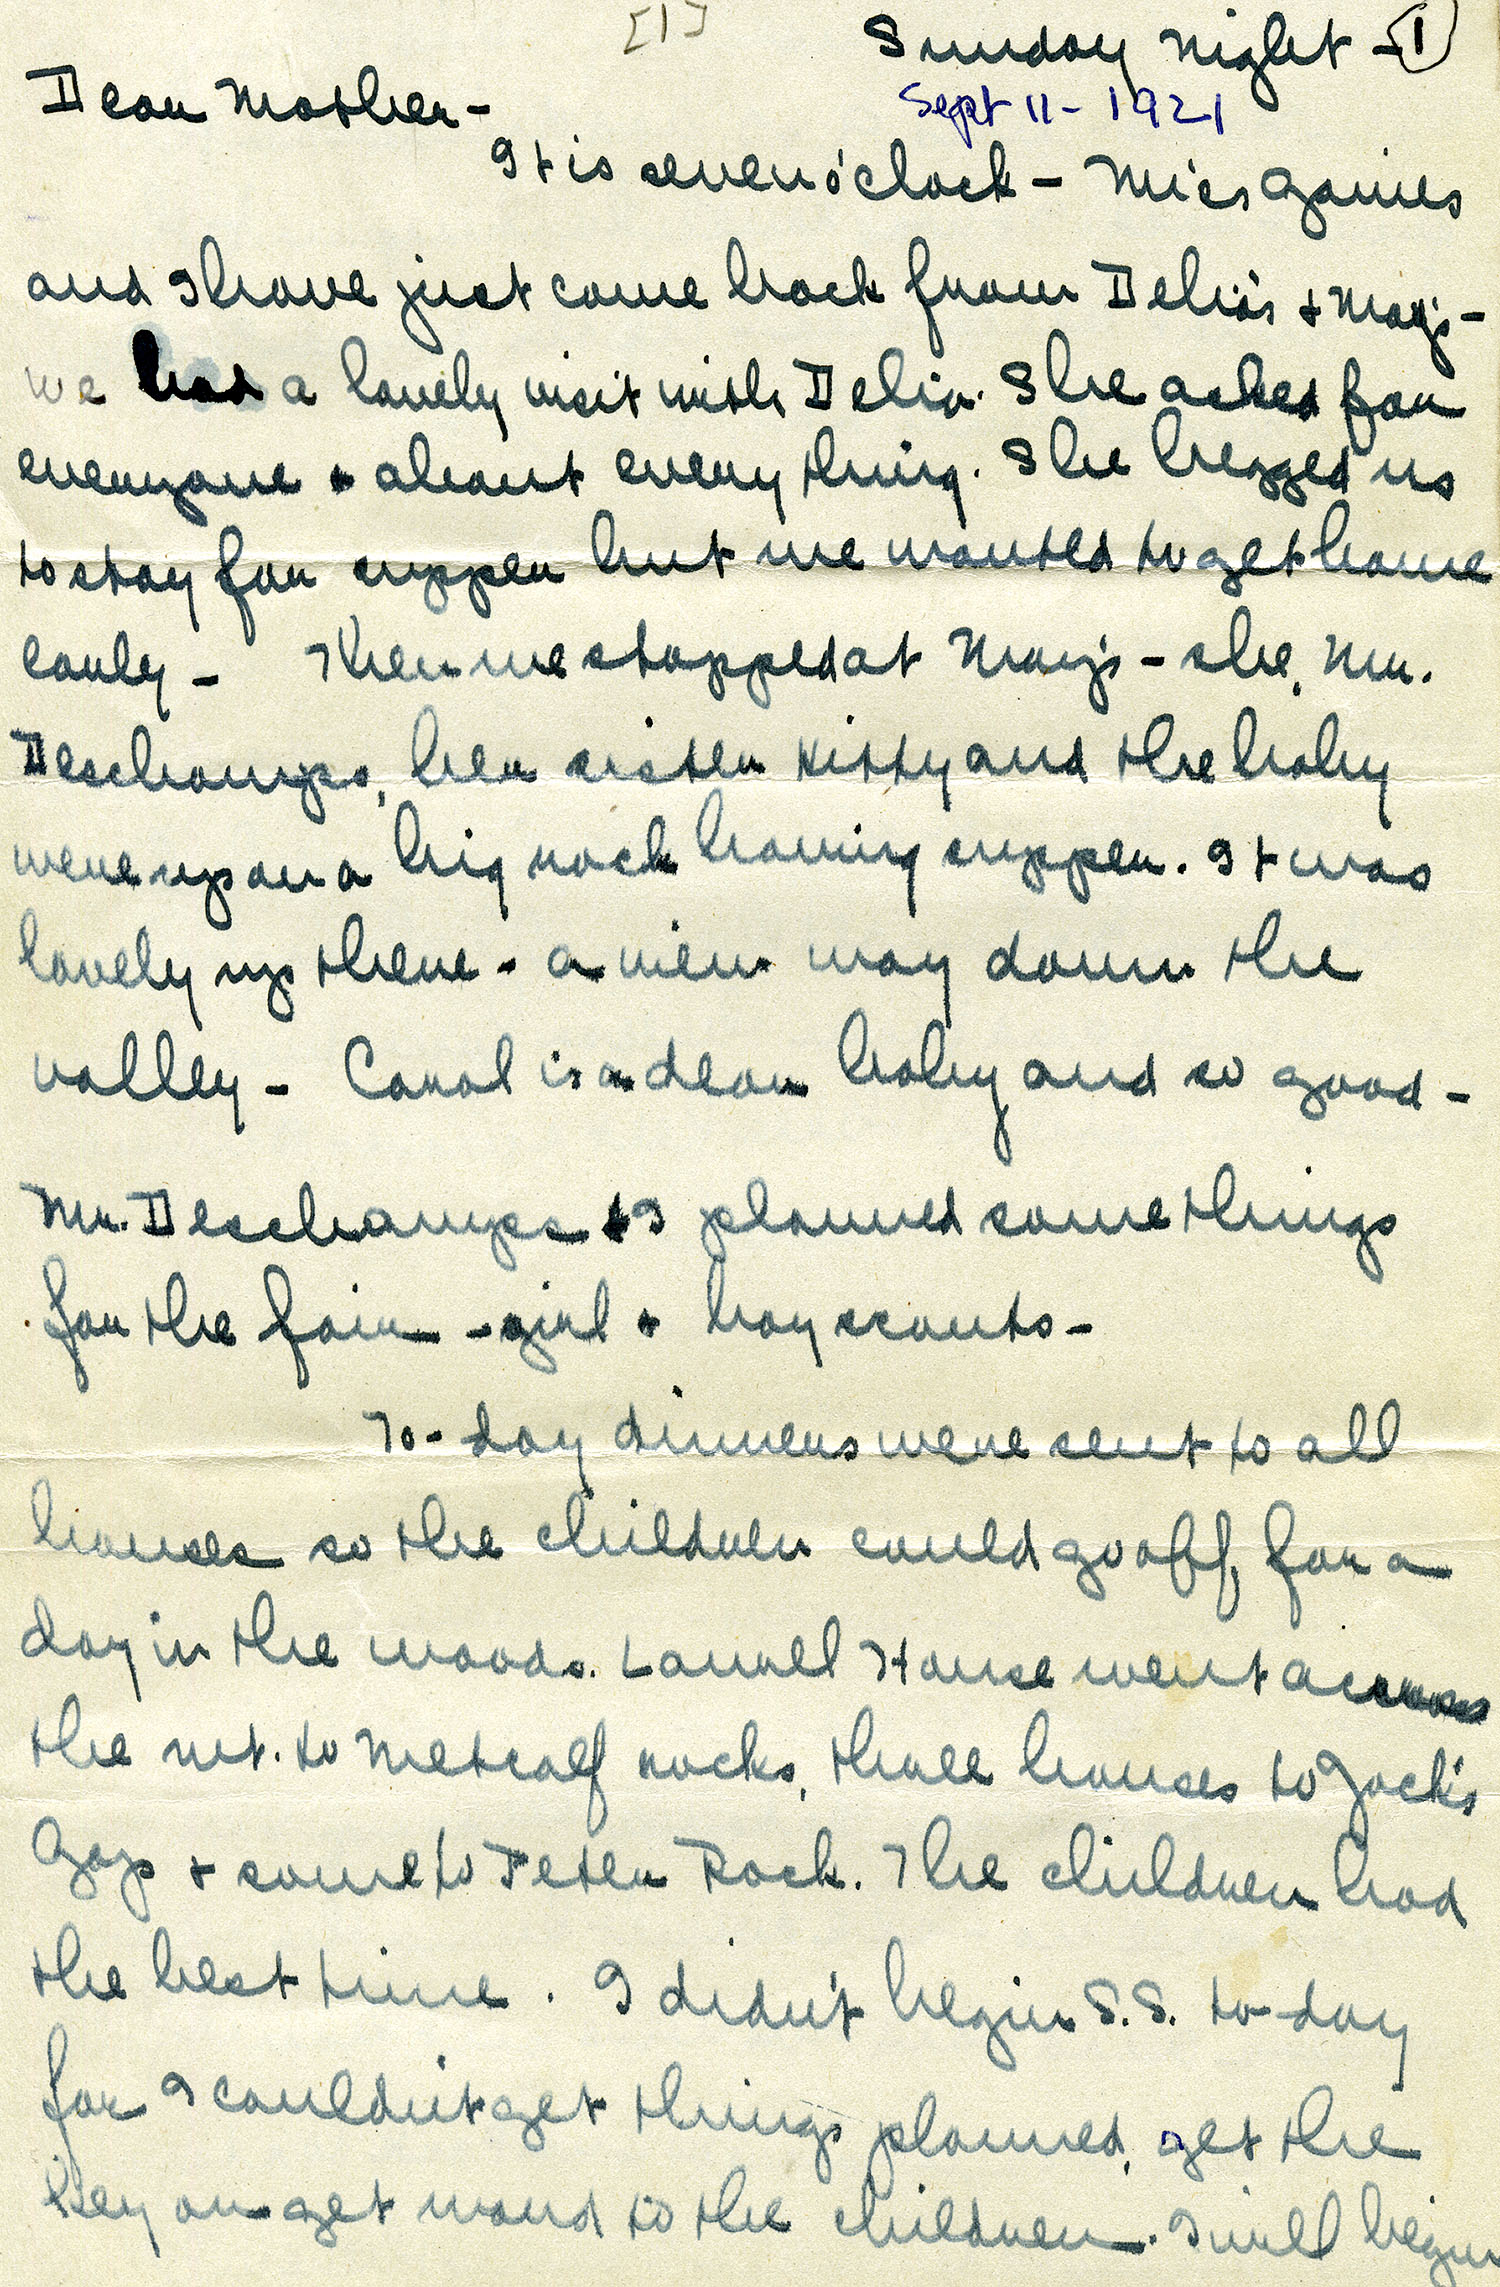 [1]
Sunday night - 1
Sept 11 - 1921
Dear Mother -
It is seven o'clock - Miss Gaines
and I have just come back from Delia's + May's -
we had a lovely visit with Delia. She asked for
everyone + about every thing. She begged us
to stay for supper but we wanted to get home
early - Then we stopped at May's - she, Mr.
Deschamps, her sister Kitty and the baby
were up on a big rock having supper. It was
lovely up there - a view way down the
valley - Carol is a dear baby and so good -
Mr. Deschamps + I planned some things
for the fair - girl + boy scouts -
To-day dinners were sent to all
houses so the children could go off for a
day in the woods. Laurel House went across
the mt. to Metcalf rocks, three houses to Jack's
Gap + some to Peter Rock. The children had
the best time. I didn't begin S.S. to-day
for I couldn't get things planned, get the
key or get word to the children. I will begin